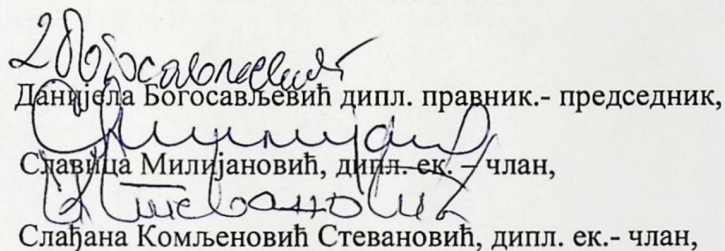 Данијела Богосављевић дипл. правник.- председник,
Славица Милијановић, дипл. ек. – члан,
Слађана Комљеновић Стевановић, дипл. ек.- члан,